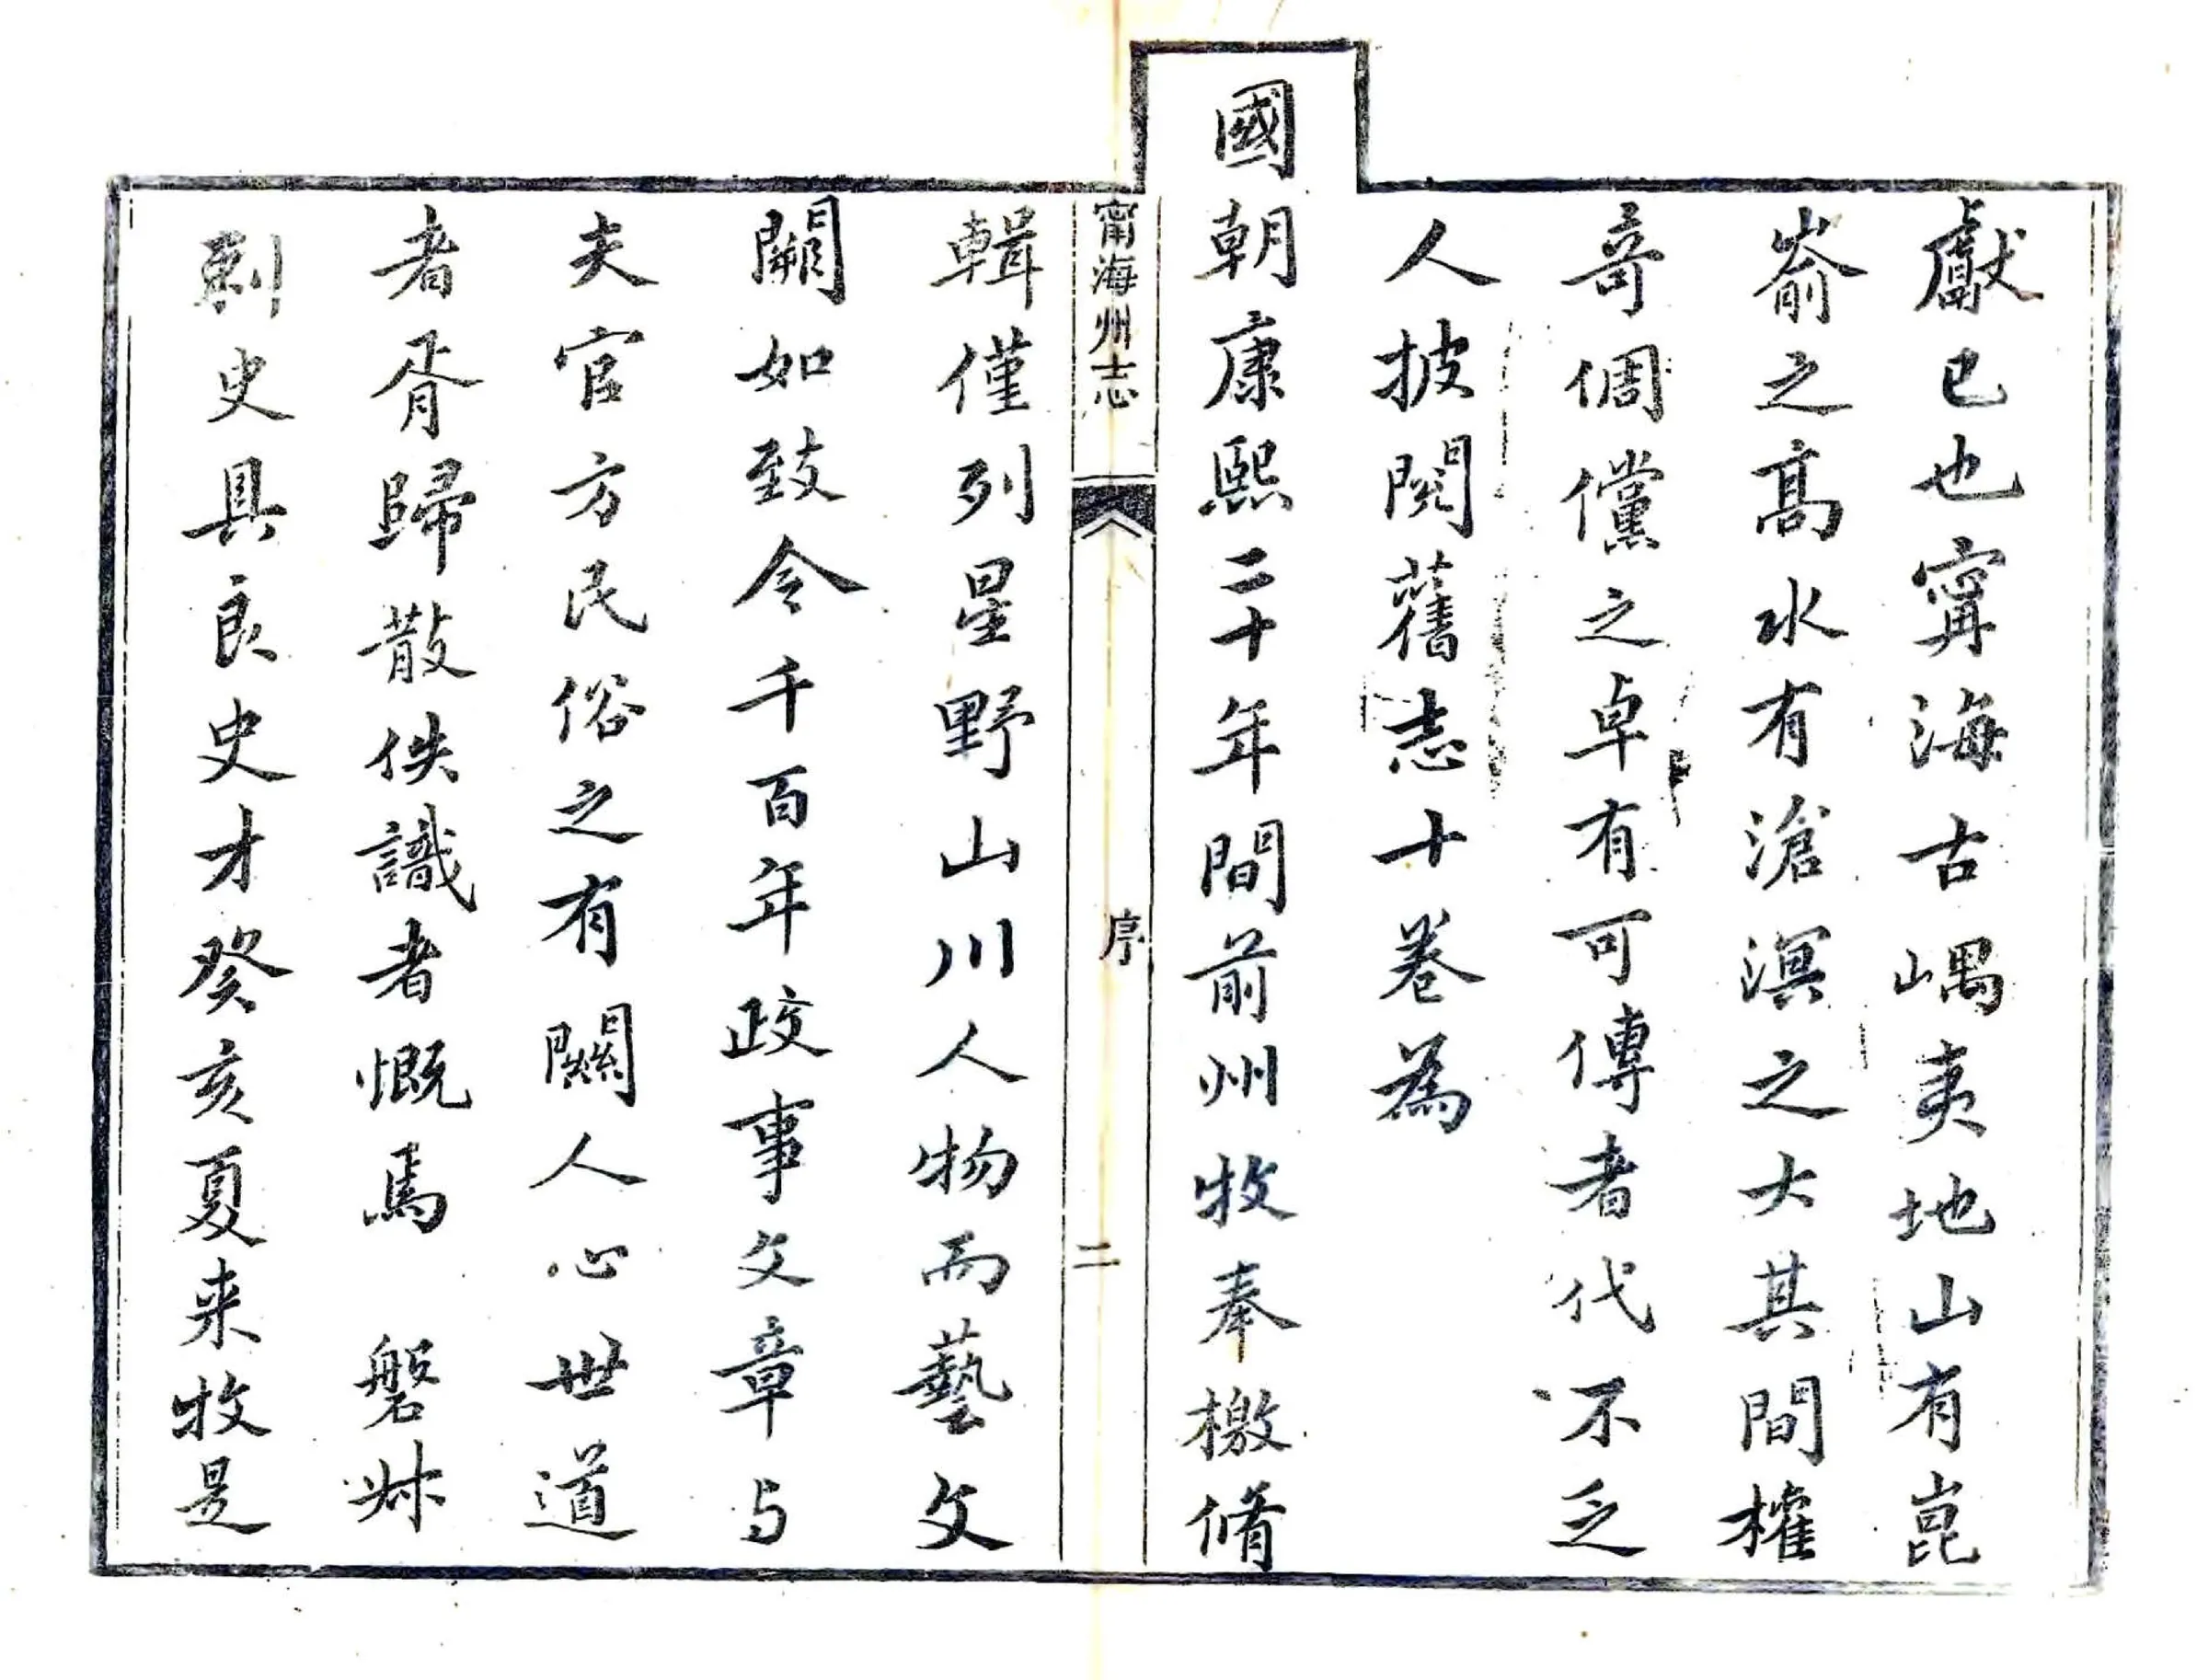 獻已也寗海古嵎夷地山有崑
崳之高水有滄溟之大其間權
奇倜儻之卓有可傳者代不乏
人披閱舊志十卷為
國朝康熙二十年間前州牧奉檄脩
甯海州志
序
二
輯僅列星野山川人物而藝文
闕如致令千百年政事文章与
夫官方民俗之有關人心世道
者胥歸散佚識者慨焉 磐
刺史具良史才癸亥夏来牧是